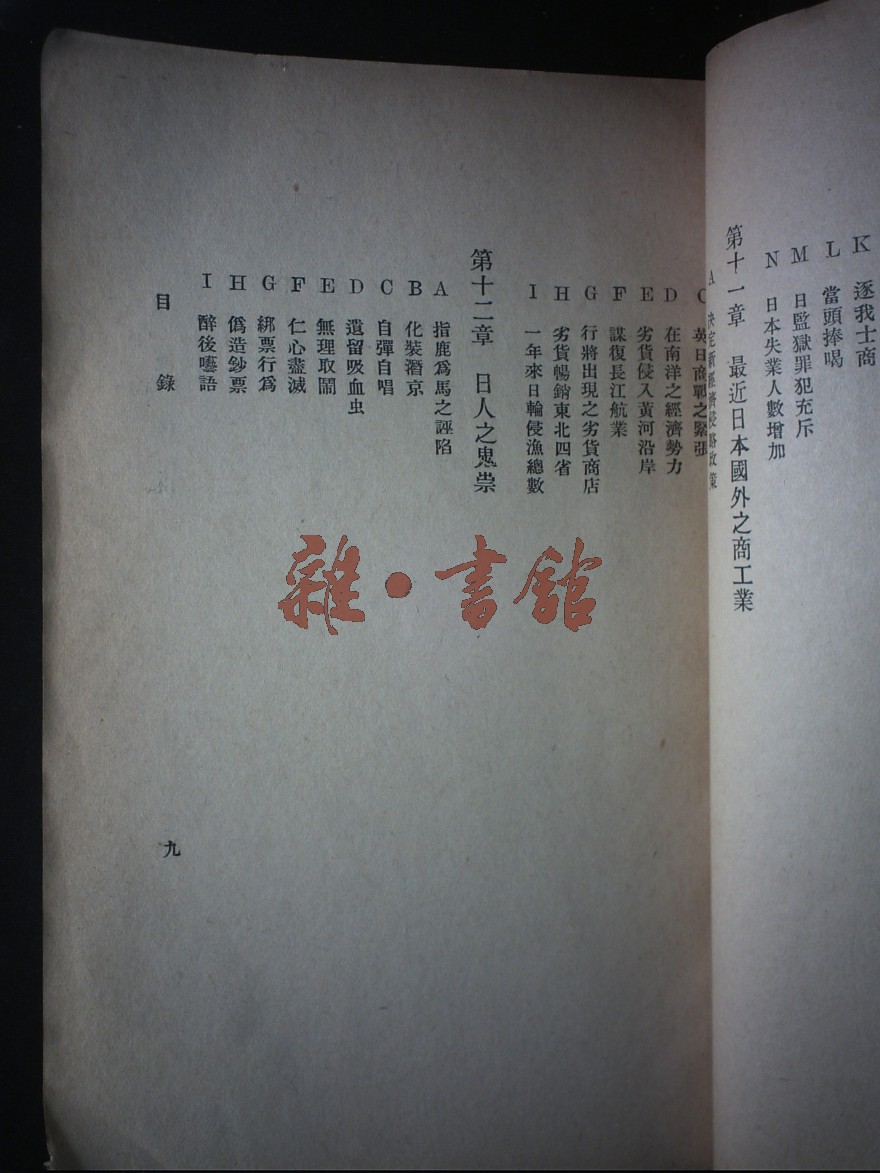 K 逐我士商
L 當頭捧喝
M 日監獄罪犯充斥
N 日本失業人數增加
第十一章 最近日本國外之商工業
A 決定新經濟侵略政策
C 英日商戰之緊張
D 在南洋之經濟勢力
E 劣貨侵入黃河沿岸
F 謀復長江航業
G 行將出現之劣貨商店
H 劣貨暢銷東北四省
I 一年來日輪侵漁總數
第十二章 日人之鬼祟
A 指鹿爲馬之誣陷
B 化裝潛京
C 自彈自唱
D 遺留吸血虫
E 無理取鬧
F 仁心盡滅
G 綁票行爲
H 僞造鈔票
I 醉後囈語
目錄
九
雜·書館